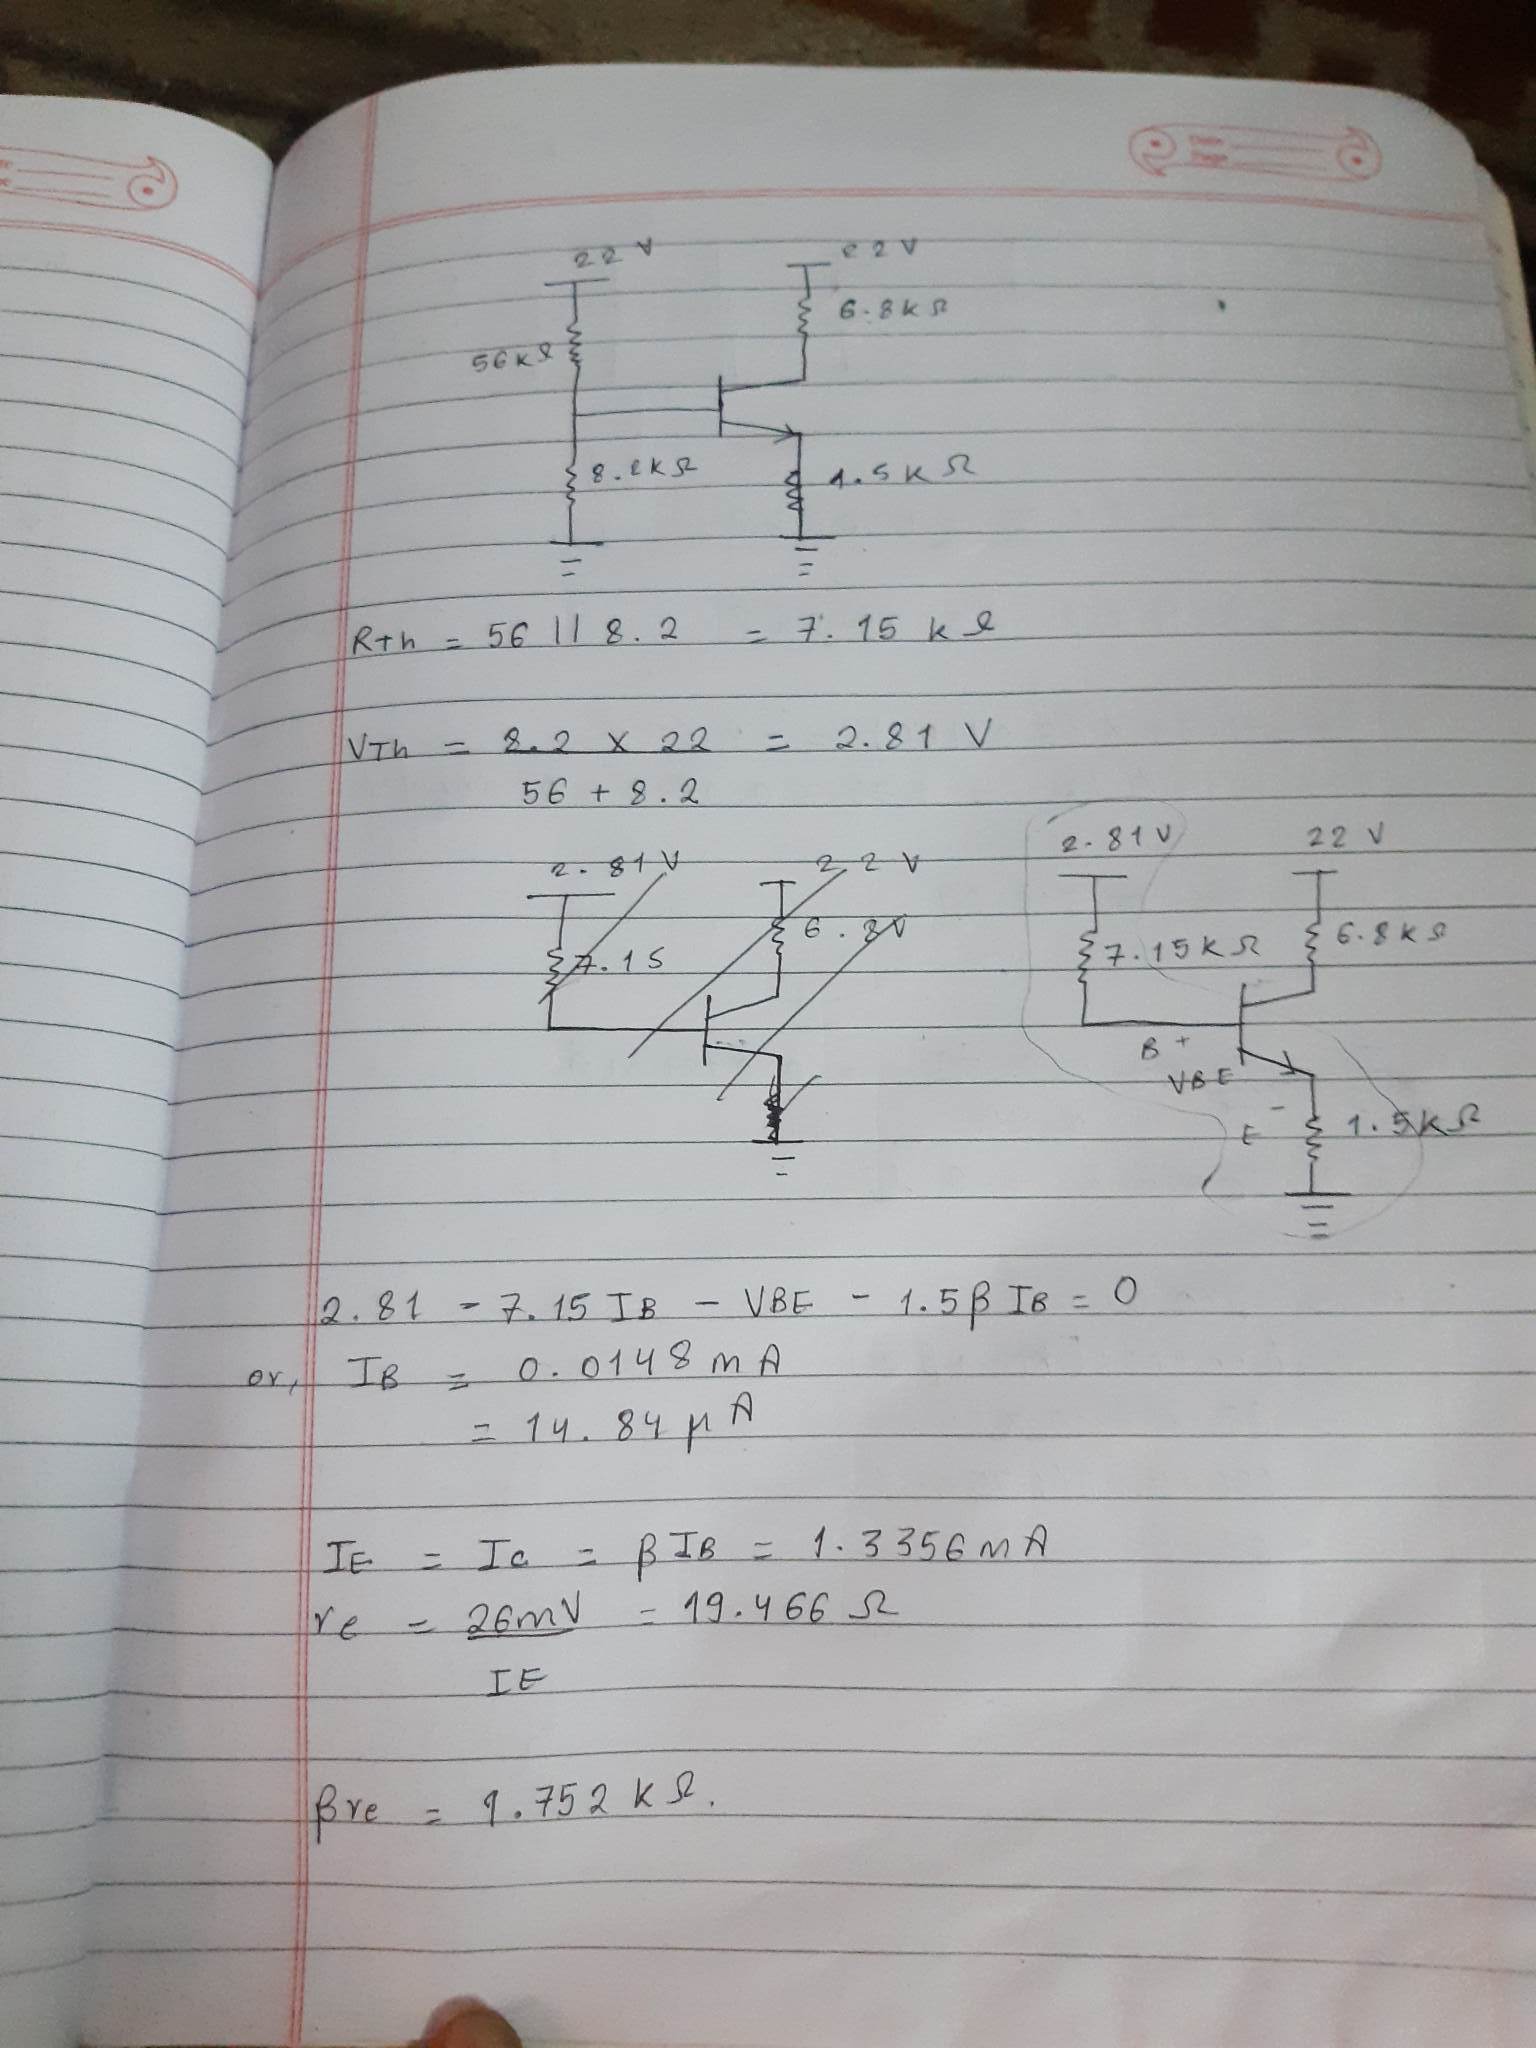 22 V
22 V
6.8 k Ω
56 k Ω
8.2 k Ω
1.5 k Ω
Rth = 56 || 8.2 = 7.15 k Ω
VTh = 8.2 × 22 = 2.81 V
56 + 8.2
2.81 V
22 V
7.15
6.8 V
2.81 V
22 V
7.15 k Ω
6.8 k Ω
B +
VBE
E -
1.5 k Ω
2.81 - 7.15 IB - VBE - 1.5 β IB = 0
or, IB = 0.0148 m A
= 14.84 μ A
IE = IC = β IB = 1.3356 m A
re = 26mV = 19.466 Ω
IE
βre = 1.752 k Ω.